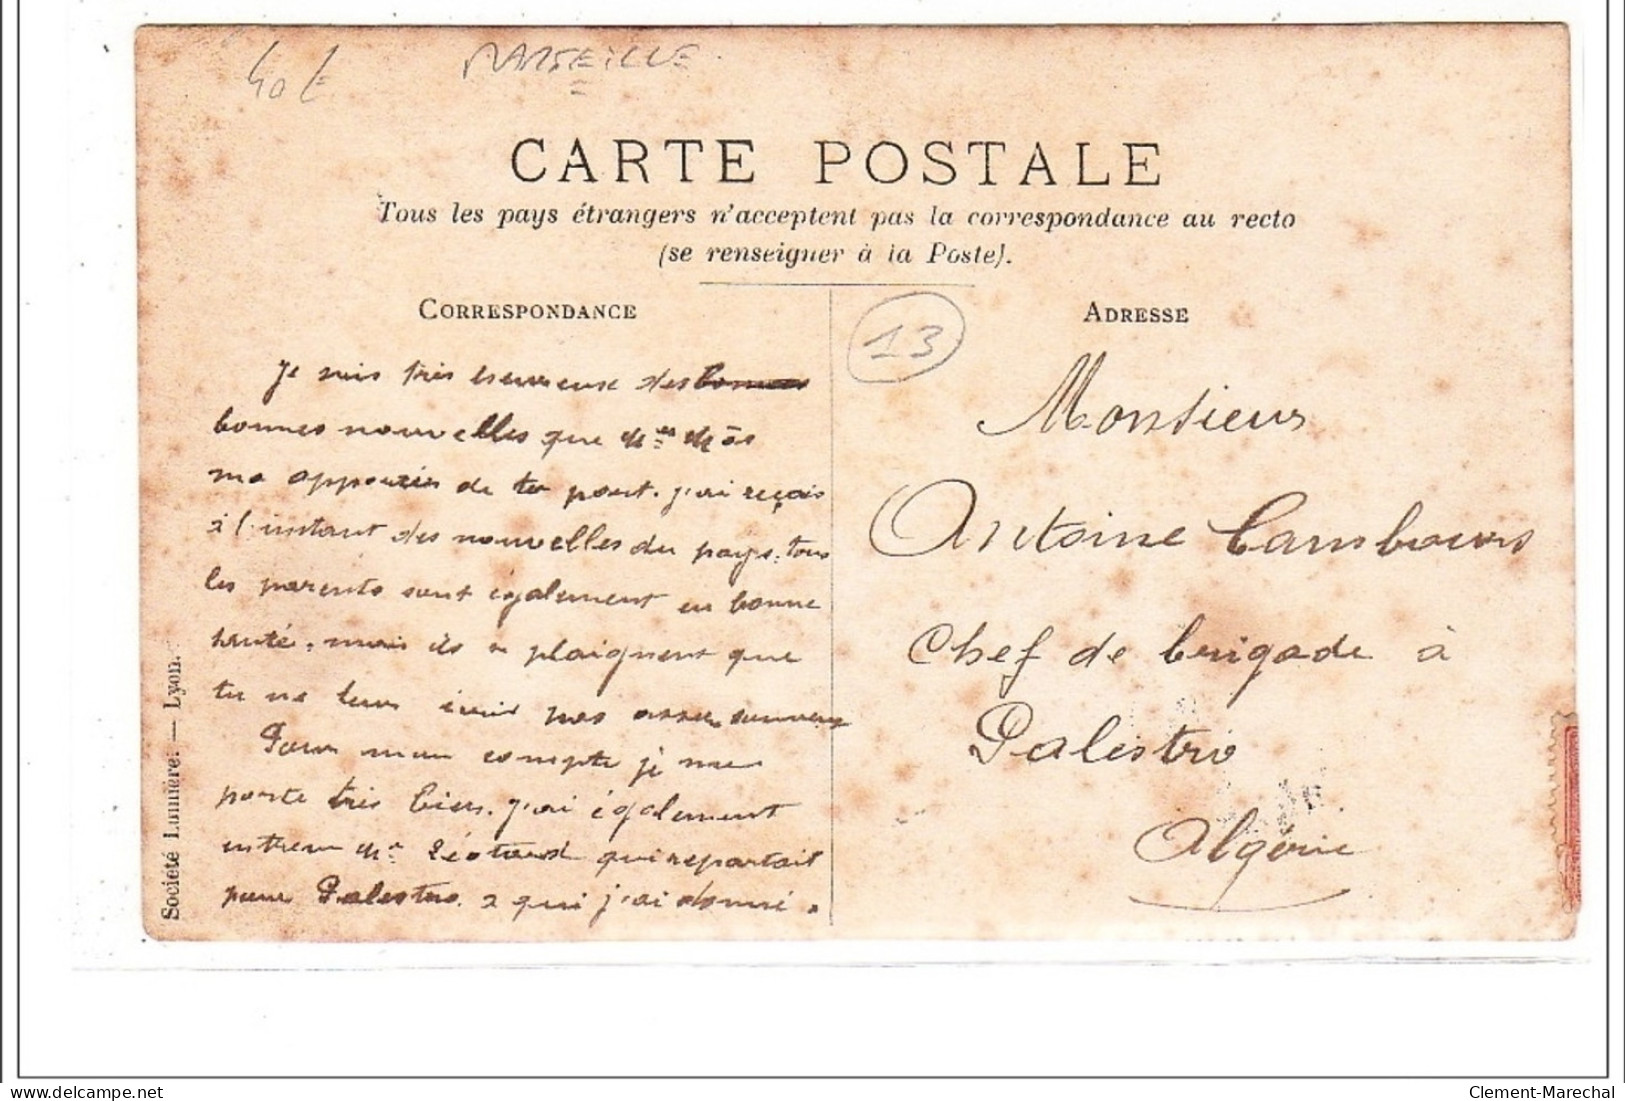 40 E
MARSEILLE
CARTE POSTALE
Tous les pays étrangers n'acceptent pas la correspondance au recto
(se renseigner à la Poste).
CORRESPONDANCE
ADRESSE
13
Je suis très heureuse des
bonnes nouvelles que
ma de ta part. j'ai reçois
à l'instant des nouvelles du pays. tous
les parents sont également en bonne
santé. mais ils se plaignent que
tu ne leur écris pas assez souvent
Pour mon compte je me
porte très bien. j'ai également
qui repartait
pour Palestro. a qui j'ai donné.
Monsieur
Antoine
Chef de brigade à
Palestro
Algérie
Société Lumière. — Lyon.
Clement-Marechal
delcampe.net